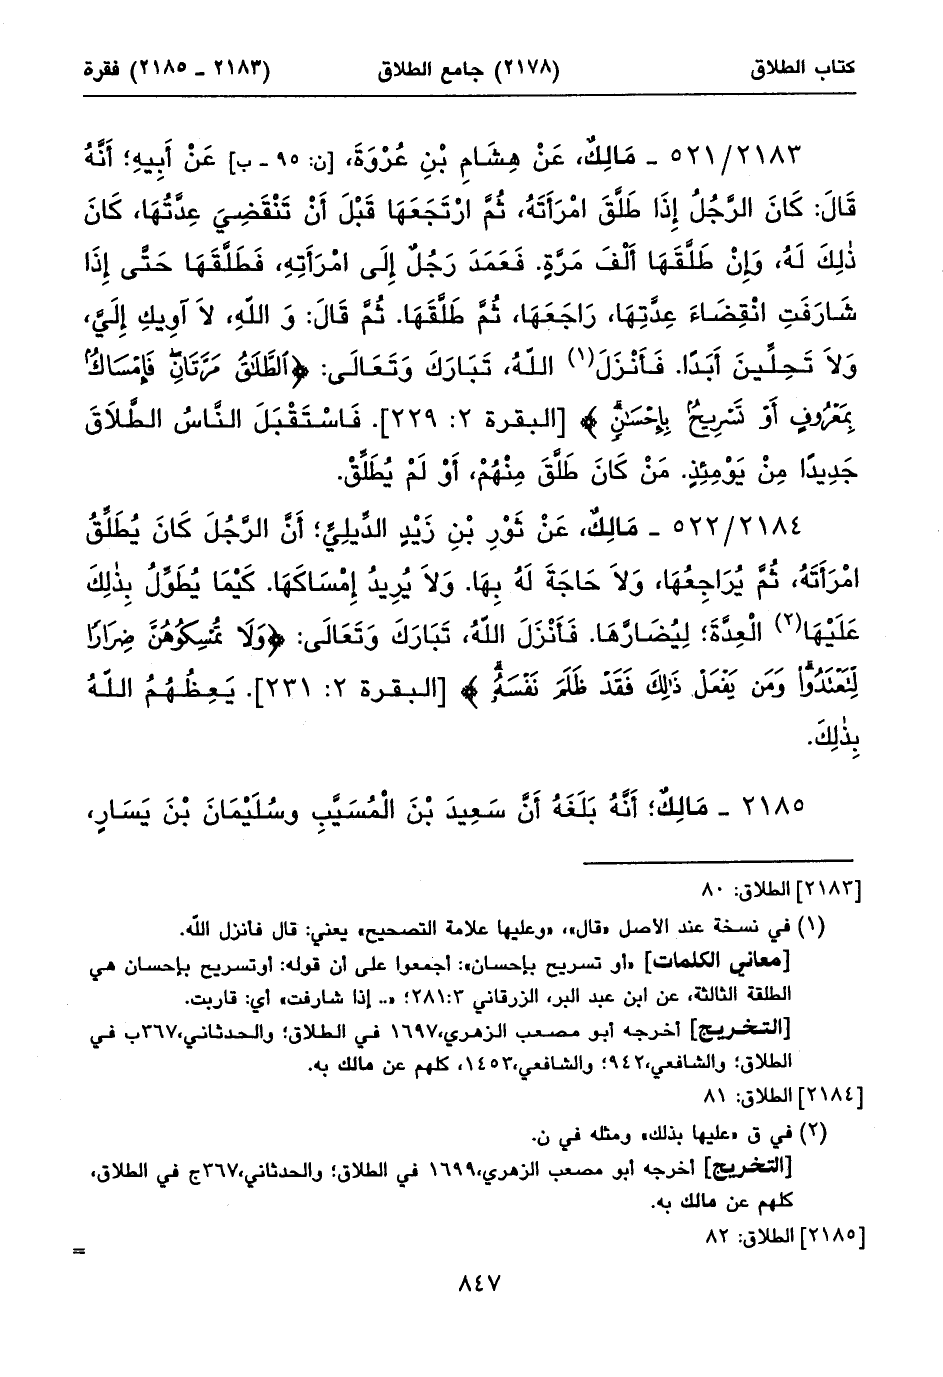 كتاب الطلاق (٢١٧٨) جامع الطلاق (٢١٨٣ ـ ٢١٨٥) فقرة
٥٢١/٢١٨٣ ـ مَالِكٌ، عَنْ هِشَامِ بْنِ عُرْوَةَ، [ن: ٩٥ ـ ب] عَنْ أَبِيهِ؛ أَنَّهُ
قَالَ: كَانَ الرَّجُلُ إِذَا طَلَّقَ امْرَأَتَهُ، ثُمَّ ارْتَجَعَهَا قَبْلَ أَنْ تَنْقَضِيَ عِدَّتُهَا، كَانَ
ذٰلِكَ لَهُ، وَإِنْ طَلَّقَهَا أَلْفَ مَرَّةٍ. فَعَمَدَ رَجُلٌ إِلَى امْرَأَتِهِ، فَطَلَّقَهَا حَتَّى إِذَا
شَارَفَتِ انْقِضَاءَ عِدَّتِهَا، رَاجَعَهَا، ثُمَّ طَلَّقَهَا. ثُمَّ قَالَ: وَ اللّهِ، لاَ آوِيكِ إِلَيَّ،
وَلاَ تَحِلِّينَ أَبَدًا. فَأَنْزَلَ(١) اللّهُ، تَبَارَكَ وَتَعَالَى: ﴿ٱلطَّلَٰقُ مَرَّتَانِۖ فَإِمْسَاكُۢ
بِمَعْرُوفٍ أَوْ تَسْرِيحُۢ بِإِحْسَٰنٍۗ ﴾ [البقرة ٢: ٢٢٩]. فَاسْتَقْبَلَ النَّاسُ الطَّلاَقَ
جَدِيدًا مِنْ يَوْمِئِذٍ. مَنْ كَانَ طَلَّقَ مِنْهُمْ، أَوْ لَمْ يُطَلِّقْ.
٥٢٢/٢١٨٤ ـ مَالِكٌ، عَنْ ثَوْرِ بْنِ زَيْدٍ الدِّيلِيِّ؛ أَنَّ الرَّجُلَ كَانَ يُطَلِّقُ
امْرَأَتَهُ، ثُمَّ يُرَاجِعُهَا، وَلاَ حَاجَةَ لَهُ بِهَا. وَلاَ يُرِيدُ إِمْسَاكَهَا. كَيْمَا يُطَوِّلُ بِذٰلِكَ
عَلَيْهَا(٢) الْعِدَّةَ؛ لِيُضَارَّهَا. فَأَنْزَلَ اللّهُ، تَبَارَكَ وَتَعَالَى: ﴿وَلَا تُمْسِكُوهُنَّ ضِرَارًا
لِّتَعْتَدُواْۚ وَمَن يَفْعَلْ ذَٰلِكَ فَقَدْ ظَلَمَ نَفْسَهُۥۚ ﴾ [البقرة ٢: ٢٣١]. يَعِظُهُمُ اللّهُ
بِذٰلِكَ.
٢١٨٥ ـ مَالِكٌ؛ أَنَّهُ بَلَغَهُ أَنَّ سَعِيدَ بْنَ الْمُسَيَّبِ وسُلَيْمَانَ بْنَ يَسَارٍ،
[٢١٨٣] الطلاق: ٨٠
(١) في نسخة عند الأصل «قال»، «وعليها علامة التصحيح» يعني: قال فأنزل اللّه.
[معاني الكلمات] «أو تسريح بإحسان»: أجمعوا على أن قوله: أوتسريح بإحسان هي
الطلقة الثالثة، عن ابن عبد البر، الزرقاني ٢٨١:٣؛ «.. إذا شارفت» أي: قاربت.
[التخريج] أخرجه أبو مصعب الزهري،١٦٩٧ في الطلاق؛ والحدثاني،٣٦٧ب في
الطلاق؛ والشافعي،٩٤٢؛ والشافعي،١٤٥٣، كلهم عن مالك به.
[٢١٨٤] الطلاق: ٨١
(٢) في ق «عليها بذلك» ومثله في ن.
[التخريج] أخرجه أبو مصعب الزهري،١٦٩٩ في الطلاق؛ والحدثاني،٣٦٧ج في الطلاق،
كلهم عن مالك به.
[٢١٨٥] الطلاق: ٨٢
=
٨٤٧